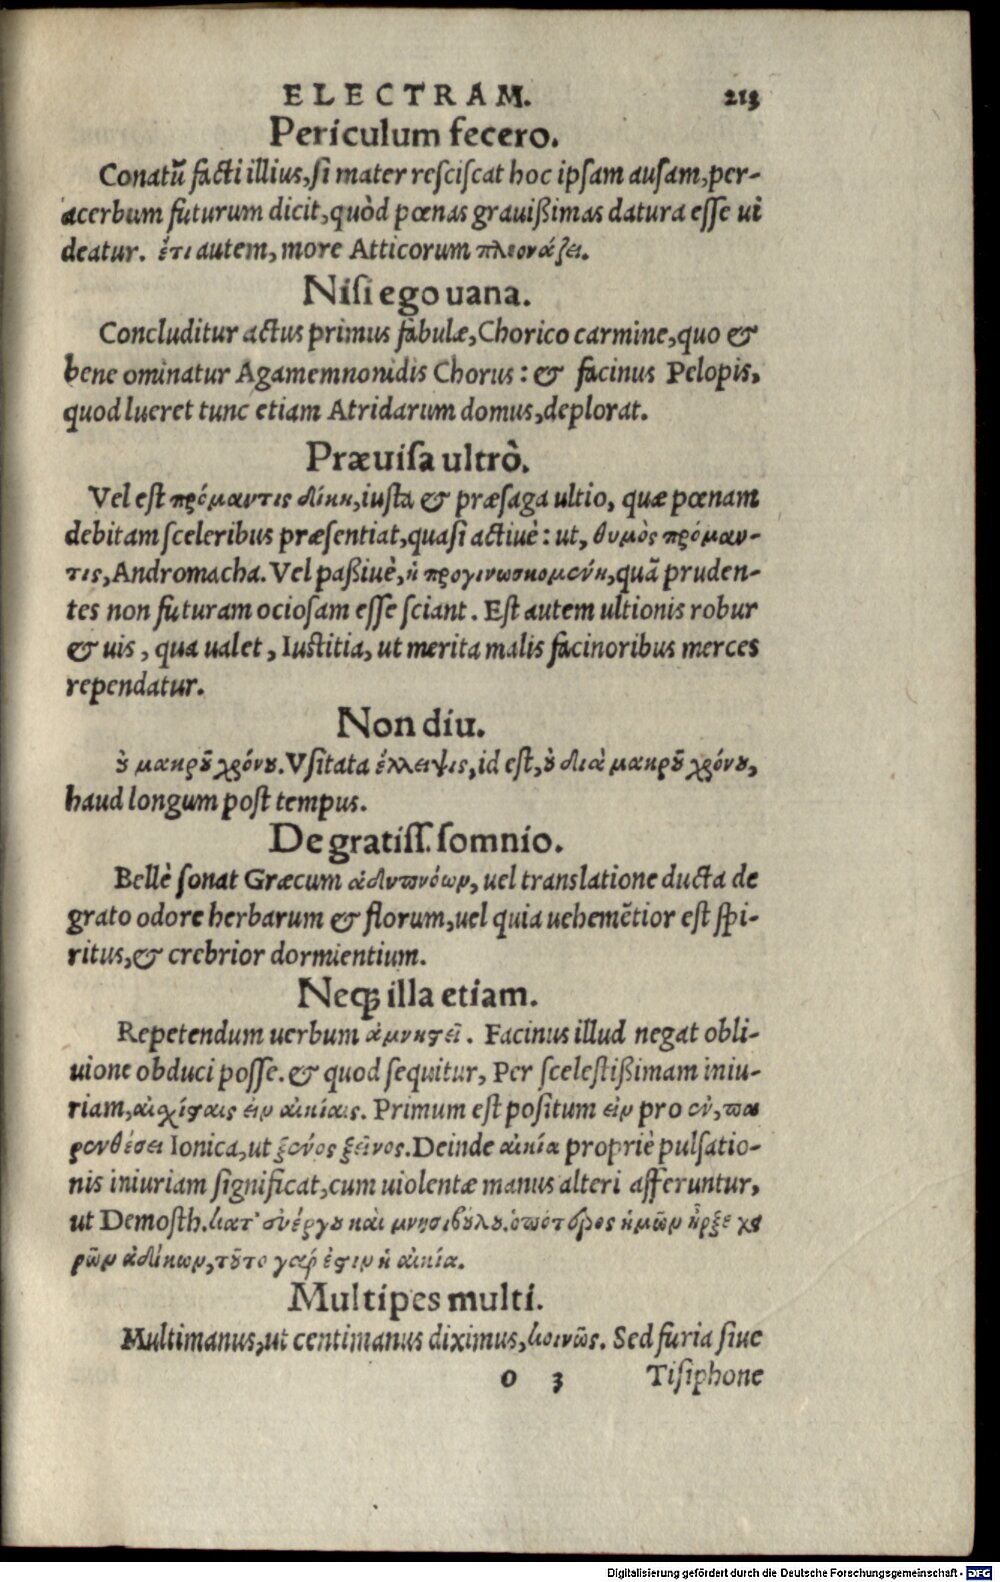 ELECTRAM. 213
Periculum fecero.
Conatū facti illius, si mater resciscat hoc ipsam ausam, per-
acerbum futurum dicit, quòd pœnas grauißimas datura esse ui
deatur. ἔτι autem, more Atticorum πλεονάζει.
Nisi ego uana.
Concluditur actus primus fabulæ, Chorico carmine, quo &
bene ominatur Agamemnonidis Chorus: & facinus Pelopis,
quod lueret tunc etiam Atridarum domus, deplorat.
Præuisa ultrò.
Vel est πρόμαντις δίκη, iusta & præsaga ultio, quæ pœnam
debitam sceleribus præsentiat, quasi actiuè: ut, θυμὸς πρόμαν-
τις, Andromacha. Vel paßiuè, ἡ προγινωσκομένη, quã pruden-
tes non futuram ociosam esse sciant. Est autem ultionis robur
& uis, qua ualet, Iustitia, ut merita malis facinoribus merces
rependatur.
Non diu.
ȣ μακρȣ͂ χρόνȣ. Vsitata ἔλλειψις, id est, ȣ διὰ μακρȣ͂ χρόνȣ,
haud longum post tempus.
De gratiss. somnio.
Bellè sonat Græcum ἁδυπνόων, uel translatione ducta de
grato odore herbarum & florum, uel quia uehemẽtior est spi-
ritus, & crebrior dormientium.
Neq; illa etiam.
Repetendum uerbum ἀμνηστεῖ. Facinus illud negat obli-
uione obduci posse. & quod sequitur, Per scelestißimam iniu-
riam, αἰχίσταις ἐν αἰκίαις. Primum est positum εἰν pro ἐν, πα
ρενθέσει Ionica, ut ξένος ξεῖνος. Deinde αἰκία propriè pulsatio-
nis iniuriam significat, cum uiolentæ manus alteri afferuntur,
ut Demosth. κατ' ἐυέργȣ καὶ μνησιβȣ́λȣ. ὁπότερος ἡμῶν ἦρξε χε
ρῶν ἀδίκων, τȣ͂το γάρ ἐστιν ἡ αἰκία.
Multipes multi.
Multimanus, ut centimanus diximus, κοινῶς. Sed furia siue
o 3 Tisiphone
Digitalisierung gefördert durch die Deutsche Forschungsgemeinschaft - DFG